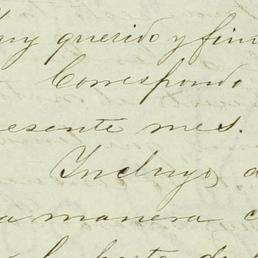 uy querido y fin
Correspondo
resente mes.
Incluyo, a
a manera c